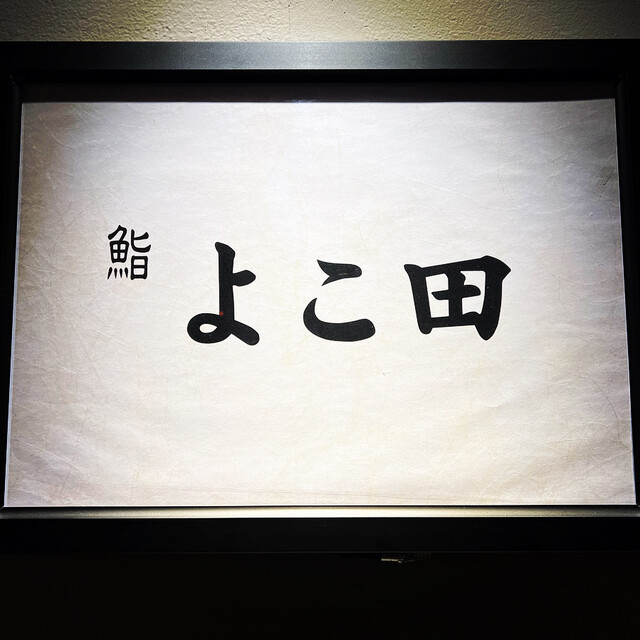 鮨 よこ田